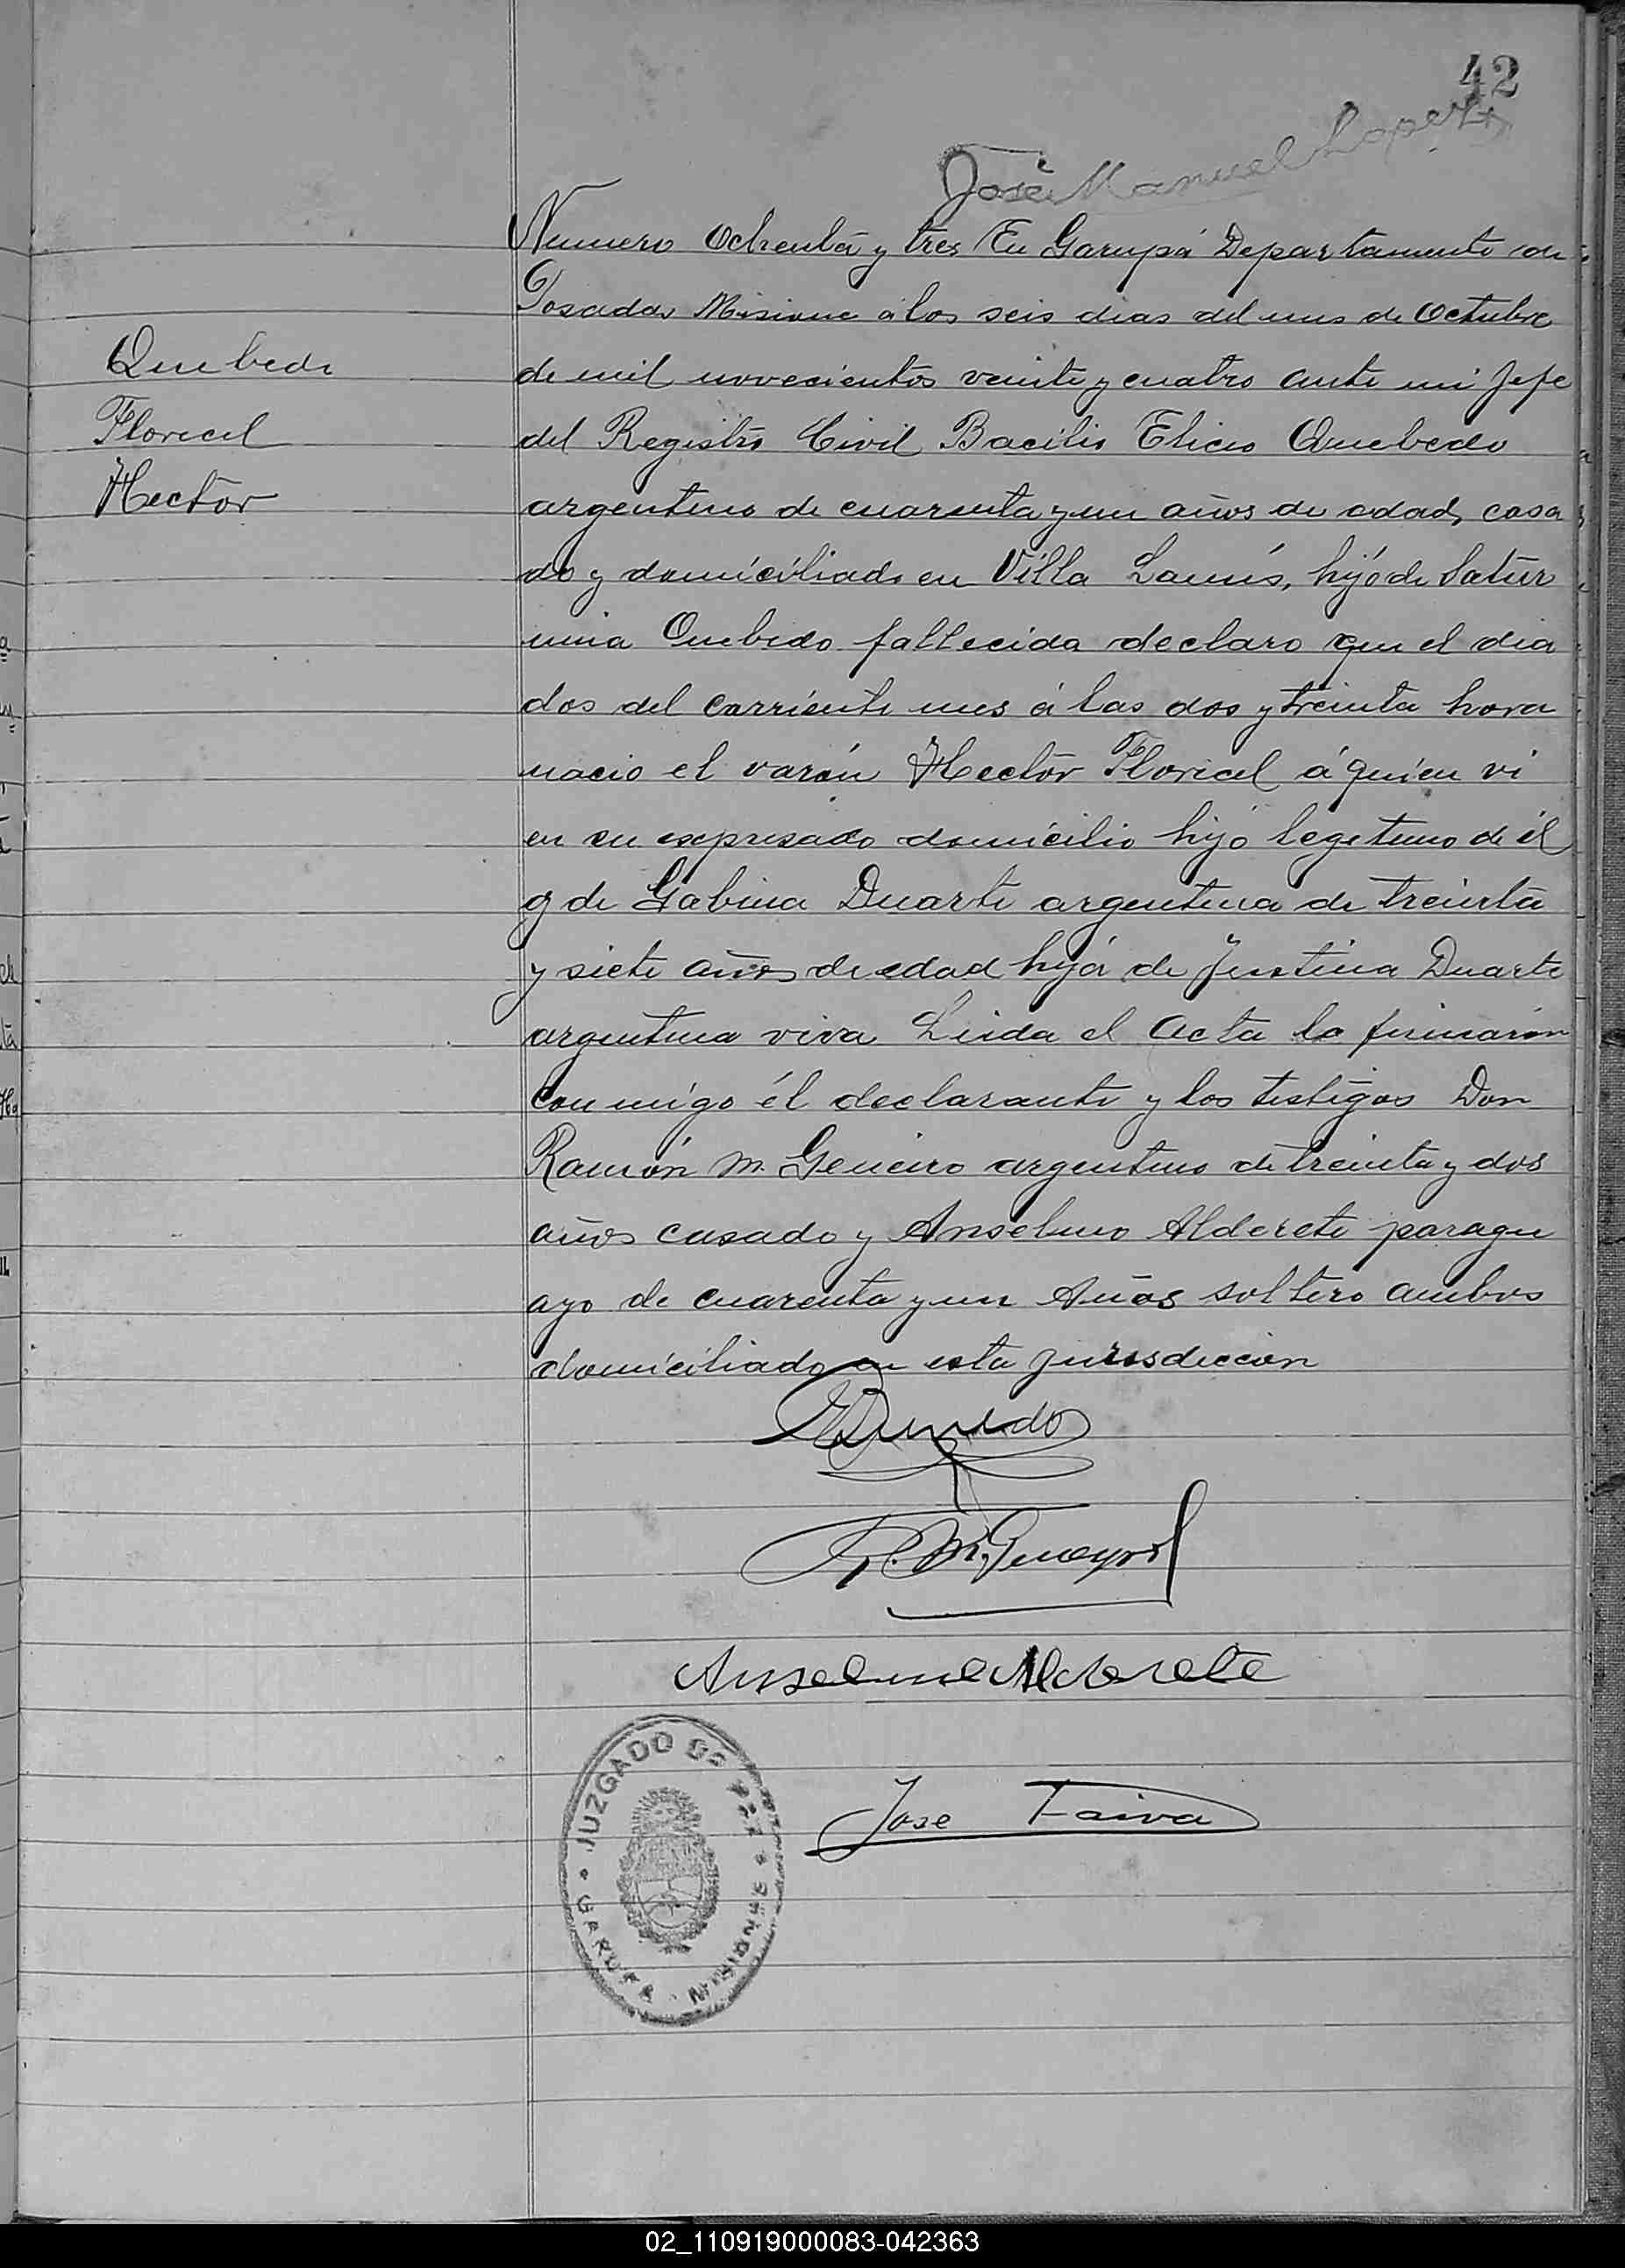 42
José Manuel Lopez
Numero Ochenta y tres En Garupá Departamento de
Posadas Misione a los seis dias del mes de Octubre
Quebedo
de mil novecientos veinte y cuatro ante mi Jefe
Florecel
del Registro Civil Bacilio Elicio Quebedo
Hector
argentino de cuarenta y un años de edad, casa
do y domiciliado en Villa Lanús, hijo de Satur
nina Quebedo fallecida declaro que el dia
dos del corriente mes á las dos y treinta hora
nacio el varón Hector Floricel á quien vi
en su expresado domicilio hijo legetimo de él
y de Gabina Duarte argentina de treinta
y siete años de edad hija de Justina Duarte
argentina viva Leida el acta la firmarón
con migo él declarante y los testigos Don
Ramón M. Geneiro argentino de treinta y dos
años casado y Anselmo Alderete paragu
ayo de cuarenta y un Años soltero ambos
domiciliado en esta jurisdiccion
R. M. Geneyro
Anselmo Alderete
JUZGADO DE PAZ
Jose Faiva
GARUPA MISIONES
02_110919000083-042363